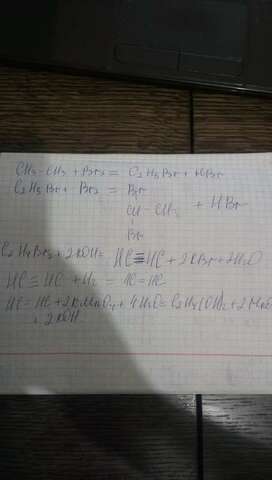 CH3-CH3 + Br2 = C2H5Br + HBr
C2H5Br + Br2 = Br
CH - CH3 + HBr
Br
C2H4Br2 + 2KOH = HC≡HC + 2KBr + 2H2O
HC ≡ HC + H2 = HC = HC
HC = HC + 2KMnO4 + 4H2O = C2H4(OH)2 + 2MnO
+ 2KOH